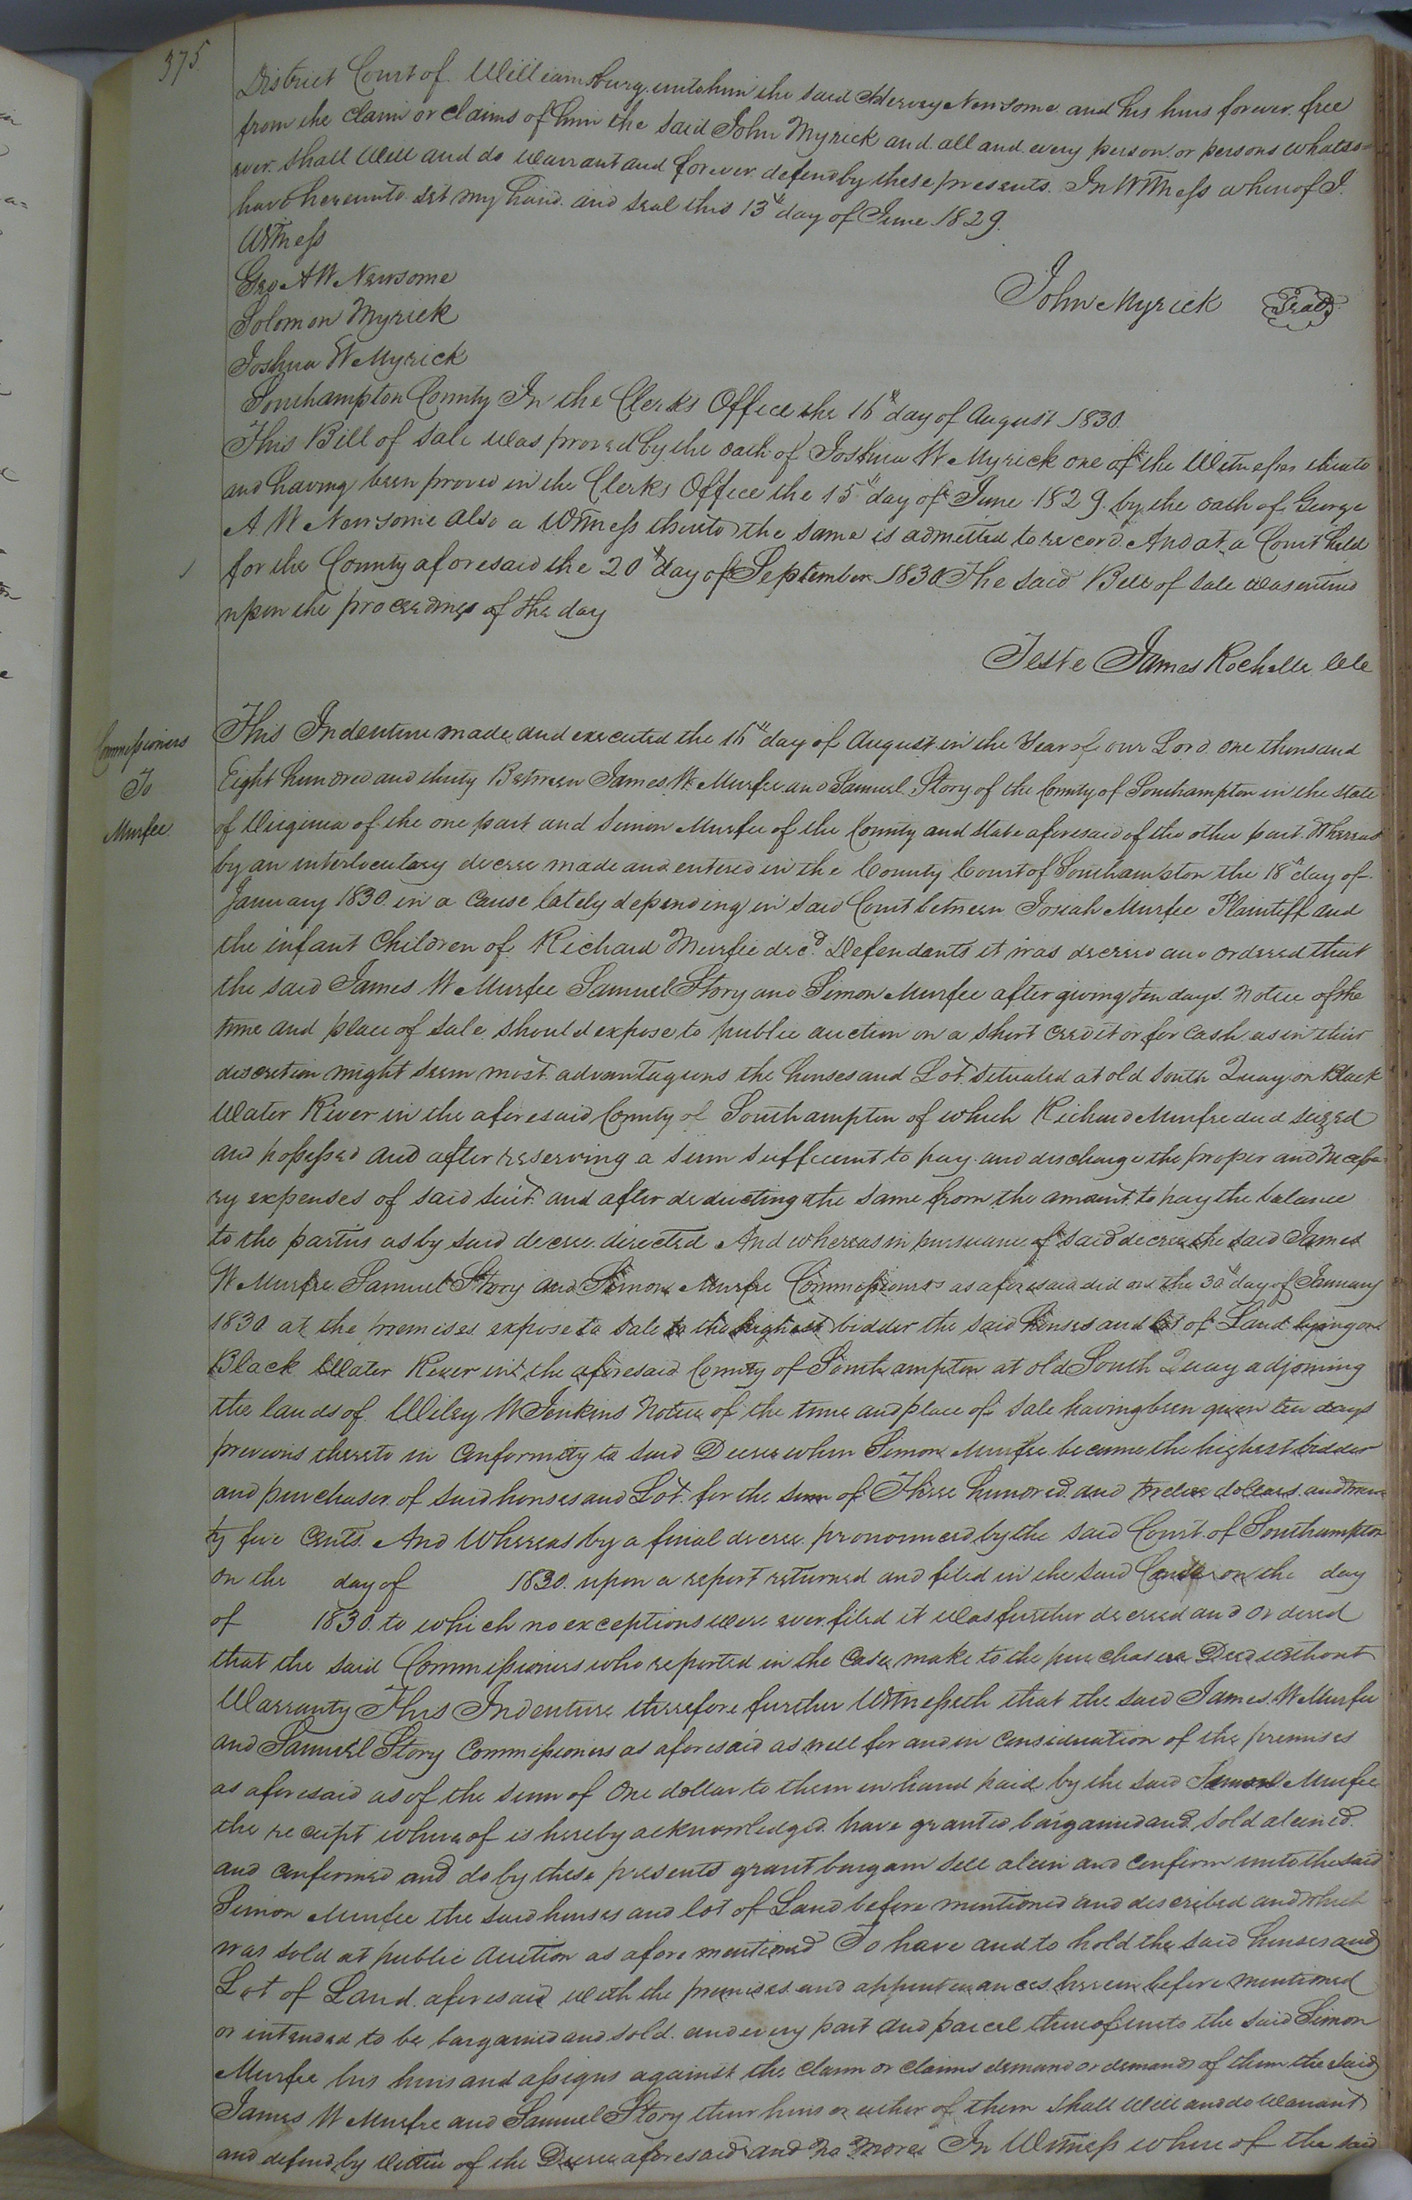 375.
District Court of Williamsburg unto him the said Hervey Newsome and his heirs forever free
from the claim or claims of him the said John Myrick and all and every person or persons whatso=
ever shall Will and do warrant and forever defend by these presents. In Witness whereof I
have hereunto set my hand and seal this 13th day of June 1829.
Witness
Geo A W Newsome
John Myrick Seal
Solomon Myrick
Joshua W Myrick
Southampton County In the Clerks Office the 16th day of August 1830.
This Bill of Sale was proved by the oath of Joshua W Myrick one of the Witnesses thereto
and having been proved in the Clerks Office the 15th day of June 1829 by the oath of George
A W Newsome also a Witness thereto the same is admitted to record And at a Court held
for the County aforesaid the 20th day of September 1830 The said Bill of Sale was entered
upon the proceedings of the day
Teste James Rochelle Clk
Commissioners
To
Murfee
This Indenture made and executed the 16th day of August in the Year of our Lord one thousand
Eight hundred and thirty Between James W Murfee and Samuel Story of the County of Southampton in the state
of Virginia of the one part and Simon Murfee of the County and state aforesaid of the other part. Whereas
by an interlocutary decree made and entered in the County Court of Southampton the 18th day of
January 1830 in a cause lately depending in said Court between Josiah Murfee Plaintiff and
the infant Children of Richard Murfee decd Defendants it was decreed and ordered that
the said James W Murfee Samuel Story and Simon Murfee after giving ten days Notice of the
time and place of sale should expose to public auction on a short credit or for cash as in their
discretion might seem most advantageous the houses and Lot situated at old South Quay on Black
Water River in the aforesaid County of Southampton of which Richard Murfee died seized
and possessed and after reserving a sum sufficient to pay and discharge the proper and Necessa-
ry expenses of said suit and after deducting the same from the amount to pay the balance
to the parties as by said decree directed And whereas in pursuance of said decree the said James
W Murfee Samuel Story and Simon Murfee Commissioners as aforesaid did on the 30th day of January
1830 at the premises expose to sale to the highest bidder the said houses and lot of Land lying on
Black Water River in the aforesaid County of Southampton at old South Quay adjoining
the lands of Wiley W Jenkins Notice of the time and place of sale having been given ten days
previous thereto in conformity to said Decree when Simon Murfee became the highest bidder
and purchaser of said houses and Lot for the sum of Three hundred and twelve dollars and twen
ty five Cents. And Whereas by a final decree pronounced by the said Court of Southampton
on the day of 1830 upon a report returned and filed in the said Cause on the day
of 1830 to which no exceptions were ever filed it was further decreed and ordered
that the said Commissioners who reported in the case make to the purchasers Deed without
Warranty This Indenture therefore further Witnesseth that the said James W Murfee
and Samuel Story Commissioners as aforesaid as well for and in consideration of the premises
as aforesaid as of the sum of One dollar to them in hand paid by the said Simon Murfee
the receipt whereof is hereby acknowledged have granted bargained and sold aleined
and confirmed and do by these presents grant bargain sell alein and confirm unto the said
Simon Murfee the said houses and lot of Land before mentioned and described and which
was sold at public Auction as afore mentioned To have and to hold the said houses and
Lot of Land aforesaid with the premises and appurtenances herein before mentioned
or intended to be bargained and sold and every part and parcel thereof unto the said Simon
Murfee his heirs and assigns against the claim or claims demand or demands of them the said
James W Murfee and Samuel Story their heirs or either of them shall Will and do Warrant
and defend by virtue of the Decree aforesaid and no more In Witness where of the said